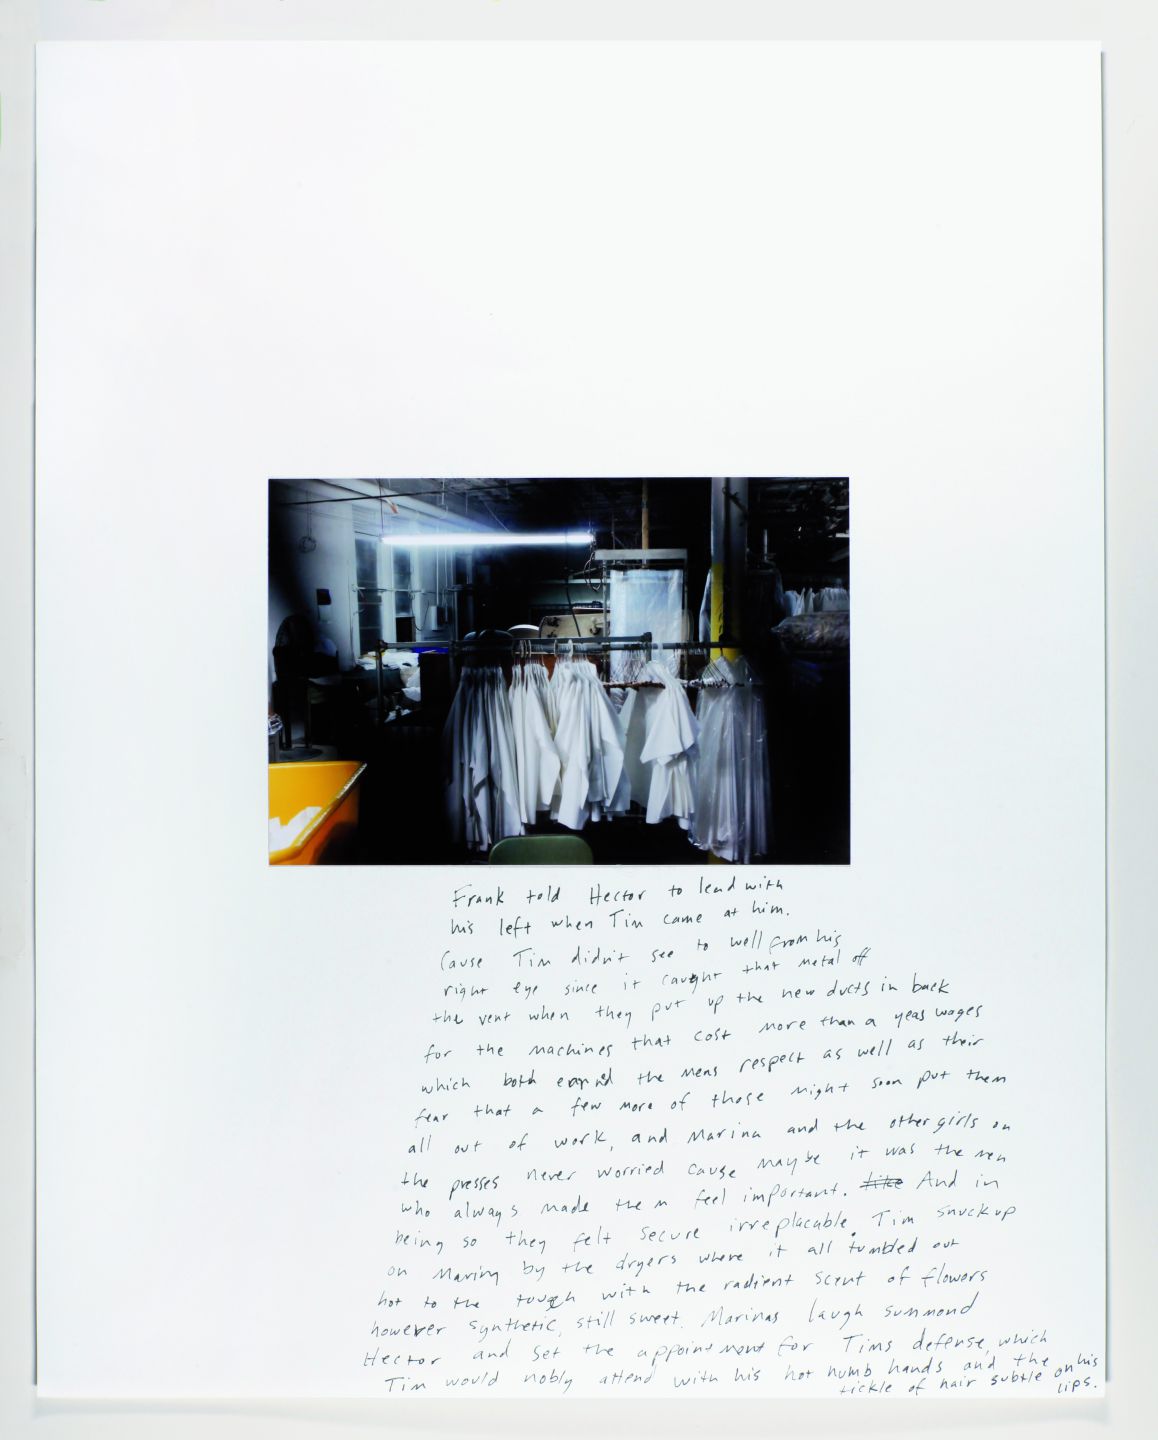 Frank told Hector to lead with
his left when Tim came at him.
Cause Tim didn't see to well from his
right eye since it caught that metal off
the vent when they put up the new ducts in back
for the machines that cost more than a yeas wages
which both earnd the mens respect as well as their
fear that a few more of those might soon put them
all out of work, and Marina and the other girls on
the presses never worried cause maybe it was the men
who always made them feel important. And in
being so they felt secure irreplacable. Tim snuck up
on Marina by the dryers where it all tumbled out
hot to the tough with the radient scent of flowers
however synthetic, still sweet. Marinas laugh summond
Hector and set the appointment for Tims defense, which
Tim would nobly attend with his hot numb hands and the
tickle of hair subtle on his
lips.